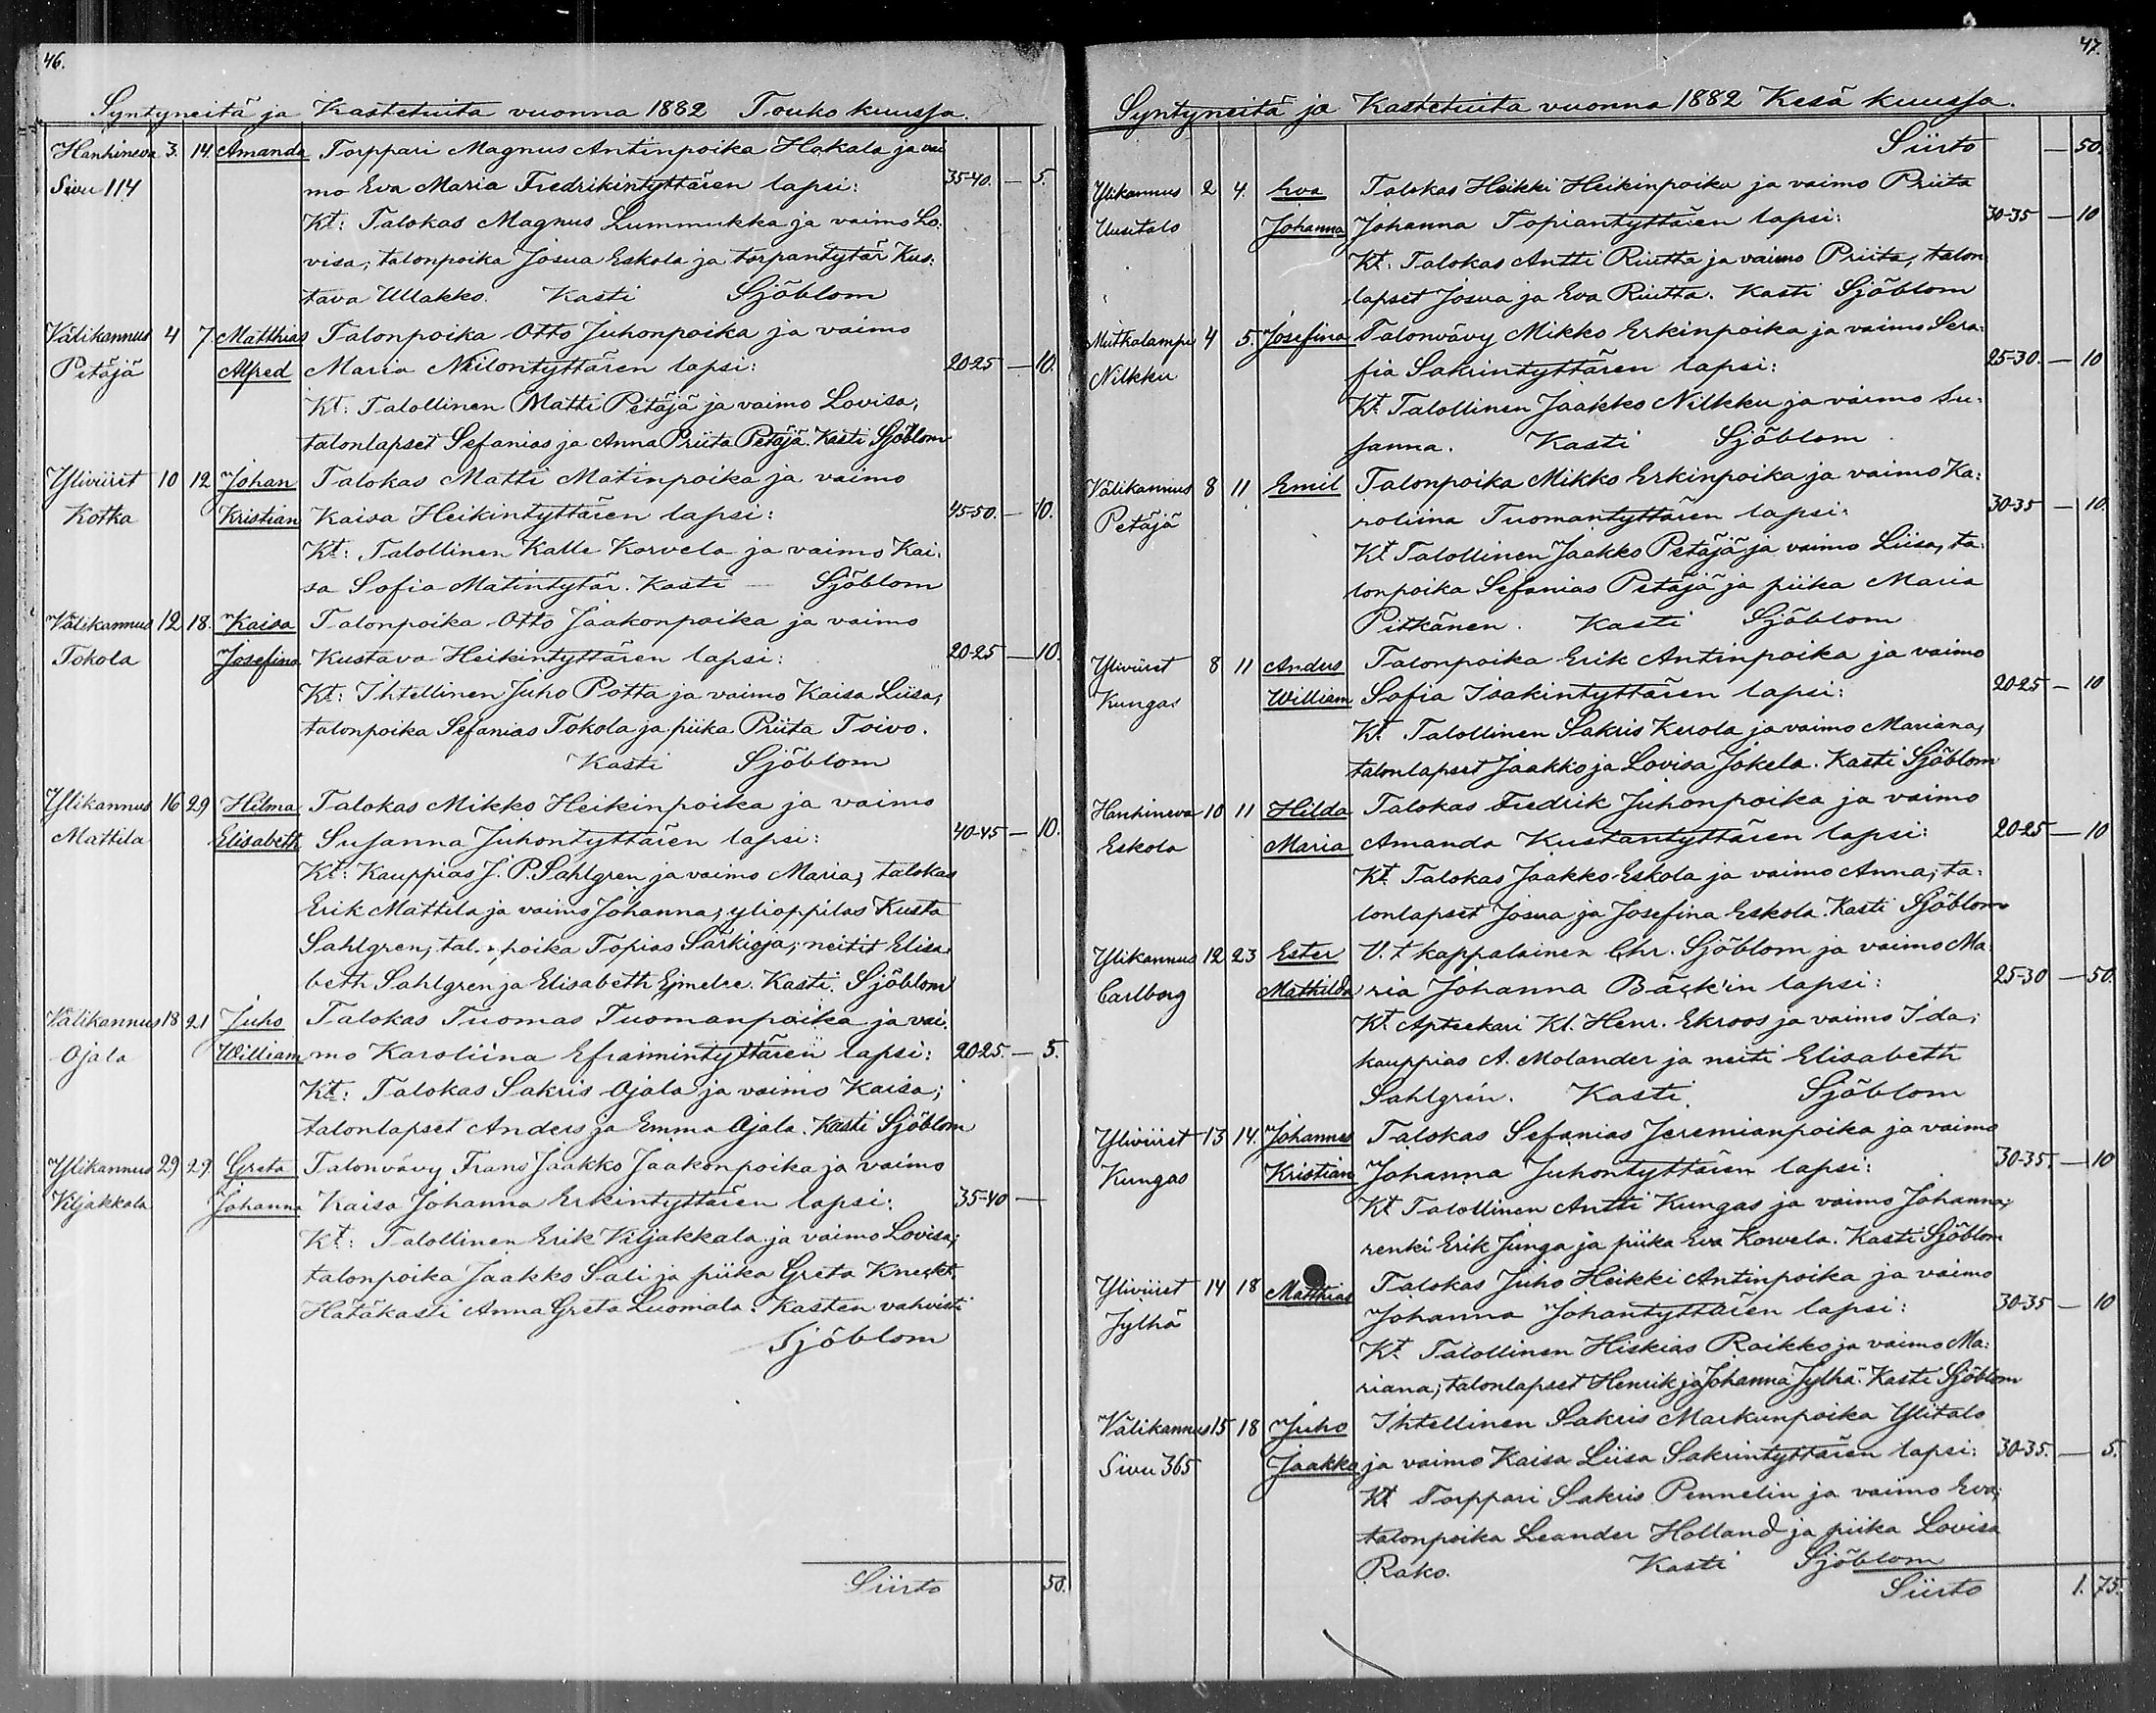 46.
Syntyneitä ja Kastetuita vuonna 1882 Touko kuussa.
Hanhineva 3. 14. Amanda Torppari Magnus Antinpoika Hakala ja vai
Sivu 114 mo Eva Maria Fredrikintyttären lapsi: 35-40. — 5.
Kt: Talokas Magnus Lummukka ja vaimo Lo:
visa, talonpoika Josua Eskola ja torpantytär Kus:
tava Ullakko. Kasti Sjöblom
Välikannus 4 7. Matthias Talonpoika Otto Juhonpoika ja vaimo
Petäjä Alfred Maria Niilontyttären lapsi: 20-25 — 10.
Kt: Talollinen Matti Petäjä ja vaimo Lovisa;
talonlapset Sefanias ja Anna Priita Petäjä. Kasti Sjöblom
Yliviiret 10 12 Johan Talokas Matti Matinpoika ja vaimo
Kotka Kristian Kaisa Heikintyttären lapsi: 45-50. — 10.
Kt: Talollinen Kalle Korvela ja vaimo Kai:
sa Sofia Matintytär. Kasti — Sjöblom
Välikannus 12 18. Kaisa Talonpoika Otto Jaakonpoika ja vaimo
Tokola Josefina Kustava Heikintyttären lapsi: 20-25 — 10.
Kt: Ihtellinen Juho Potta ja vaimo Kaisa Liisa;
talonpoika Sefanias Tokola ja piika Priita Toivo.
Kasti Sjöblom
Ylikannus 16 29 Hilma Talokas Mikko Heikinpoika ja vaimo
Mattila Elisabeth Susanna Juhontyttären lapsi: 40-45 — 10.
Kt: Kauppias J. P. Sahlgren ja vaimo Maria; talokas
Erik Mattila ja vaimo Johanna; ylioppilas Kusta
Sahlgren; talonpoika Topias Särkioja; neitit Elisa:
beth Sahlgren ja Elisabeth Ejmelee. Kasti. Sjöblom
Välikannus 18 21 Juho Talokas Tuomas Tuomanpoika ja vai
Ojala William mo Karoliina Efraimintyttären lapsi: 20-25. — 5.
Kt: Talokas Sakris Ojala ja vaimo Kaisa;
talonlapset Anders ja Emma Ojala. Kasti Sjöblom
Ylikannus 29 29. Greta Talonvävy Frans Jaakko Jaakonpoika ja vaimo
Viljakkala Johanna Kaisa Johanna Erkintyttären lapsi: 35-40 —
Kt: Talollinen Erik Viljakkala ja vaimo Lovisa;
talonpoika Jaakko Sali ja piika Greta Knekt.
Hätäkasti Anna Greta Luomala. Kasten vahvisti
Sjöblom
Siirto 50.
47.
Syntyneitä ja Kastetuita vuonna 1882 Kesä kuussa.
Siirto — 50.
Ylikannus 2 4. Eva Talokas Heikki Heikinpoika ja vaimo Priita
Uusitalo Johanna Johanna Topiantyttären lapsi: 30-35 — 10
Kt. Talokas Antti Riutta ja vaimo Priita, talon
lapset Josua ja Eva Riutta. Kasti Sjöblom
Mutkalampi 4 5. Josefina Talonvävy Mikko Erkinpoika ja vaimo Sera:
Nilkku fia Sakrintyttären lapsi: 25-30. — 10
Kt. Talollinen Jaakko Nilkku ja vaimo Su:
sanna. Kasti Sjöblom
Välikannus 8 11 Emil Talonpoika Mikko Erkinpoika ja vaimo Ka:
Petäjä roliina Tuomantyttären lapsi: 30-35 — 10.
Kt Talollinen Jaakko Petäjä ja vaimo Liisa, ta:
lonpoika Sefanias Petäjä ja piika Maria
Pitkänen. Kasti Sjöblom
Yliviiret 8 11 Anders Talonpoika Erik Antinpoika ja vaimo
Kungas William Sofia Isakintyttären lapsi: 20-25 — 10
Kt. Talollinen Sakris Kerola ja vaimo Mariana,
talonlapset Jaakko ja Lovisa Jokela. Kasti Sjöblom
Hanhineva 10 11 Hilda Talokas Fredrik Juhonpoika ja vaimo
Eskola Maria Amanda Kustantyttären lapsi: 20-25 — 10
Kt. Talokas Jaakko Eskola ja vaimo Anna; ta:
lonlapset Josua ja Josefina Eskola. Kasti Sjöblom
Ylikannus 12 23 Ester V. t kappalainen Chr. Sjöblom ja vaimo Ma:
Carlborg Mathilda ria Johanna Bäck'in lapsi: 25-30 — 50.
Kt. Aptsekari Kl. Henr. Ekroos ja vaimo Ida;
kauppias A. Molander ja neiti Elisabeth
Sahlgrén. Kasti. Sjöblom
Yliviiret 13 14. Johannes Talokas Sefanias Jeremianpoika ja vaimo
Kungas Kristian Johanna Juhontyttären lapsi: 30-35. — 10
Kt Talollinen Antti Kungas ja vaimo Johanna;
renki Erik Junga ja piika Eva Korvela. Kasti Sjöblom
Yliviiret 14 18 Matthias Talokas Juho Heikki Antinpoika ja vaimo
Jylhä Johanna Johantyttären lapsi: 30-35 — 10
Kt. Talollinen Hiskias Raikko ja vaimo Ma:
riana; talonlapset Henrik ja Johanna Jylhä. Kasti Sjöblom
Välikannus 15 18 Juho Ihtellinen Sakris Markunpoika Ylitalo
Sivu 365 Jaakko ja vaimo Kaisa Liisa Sakrintyttären lapsi: 30-35. — 5.
Kt Torppari Sakris Pennelin ja vaimo Eva;
talonpoika Leander Holland ja piika Lovisa
Rako. Kasti Sjöblom
Siirto 1. 75.